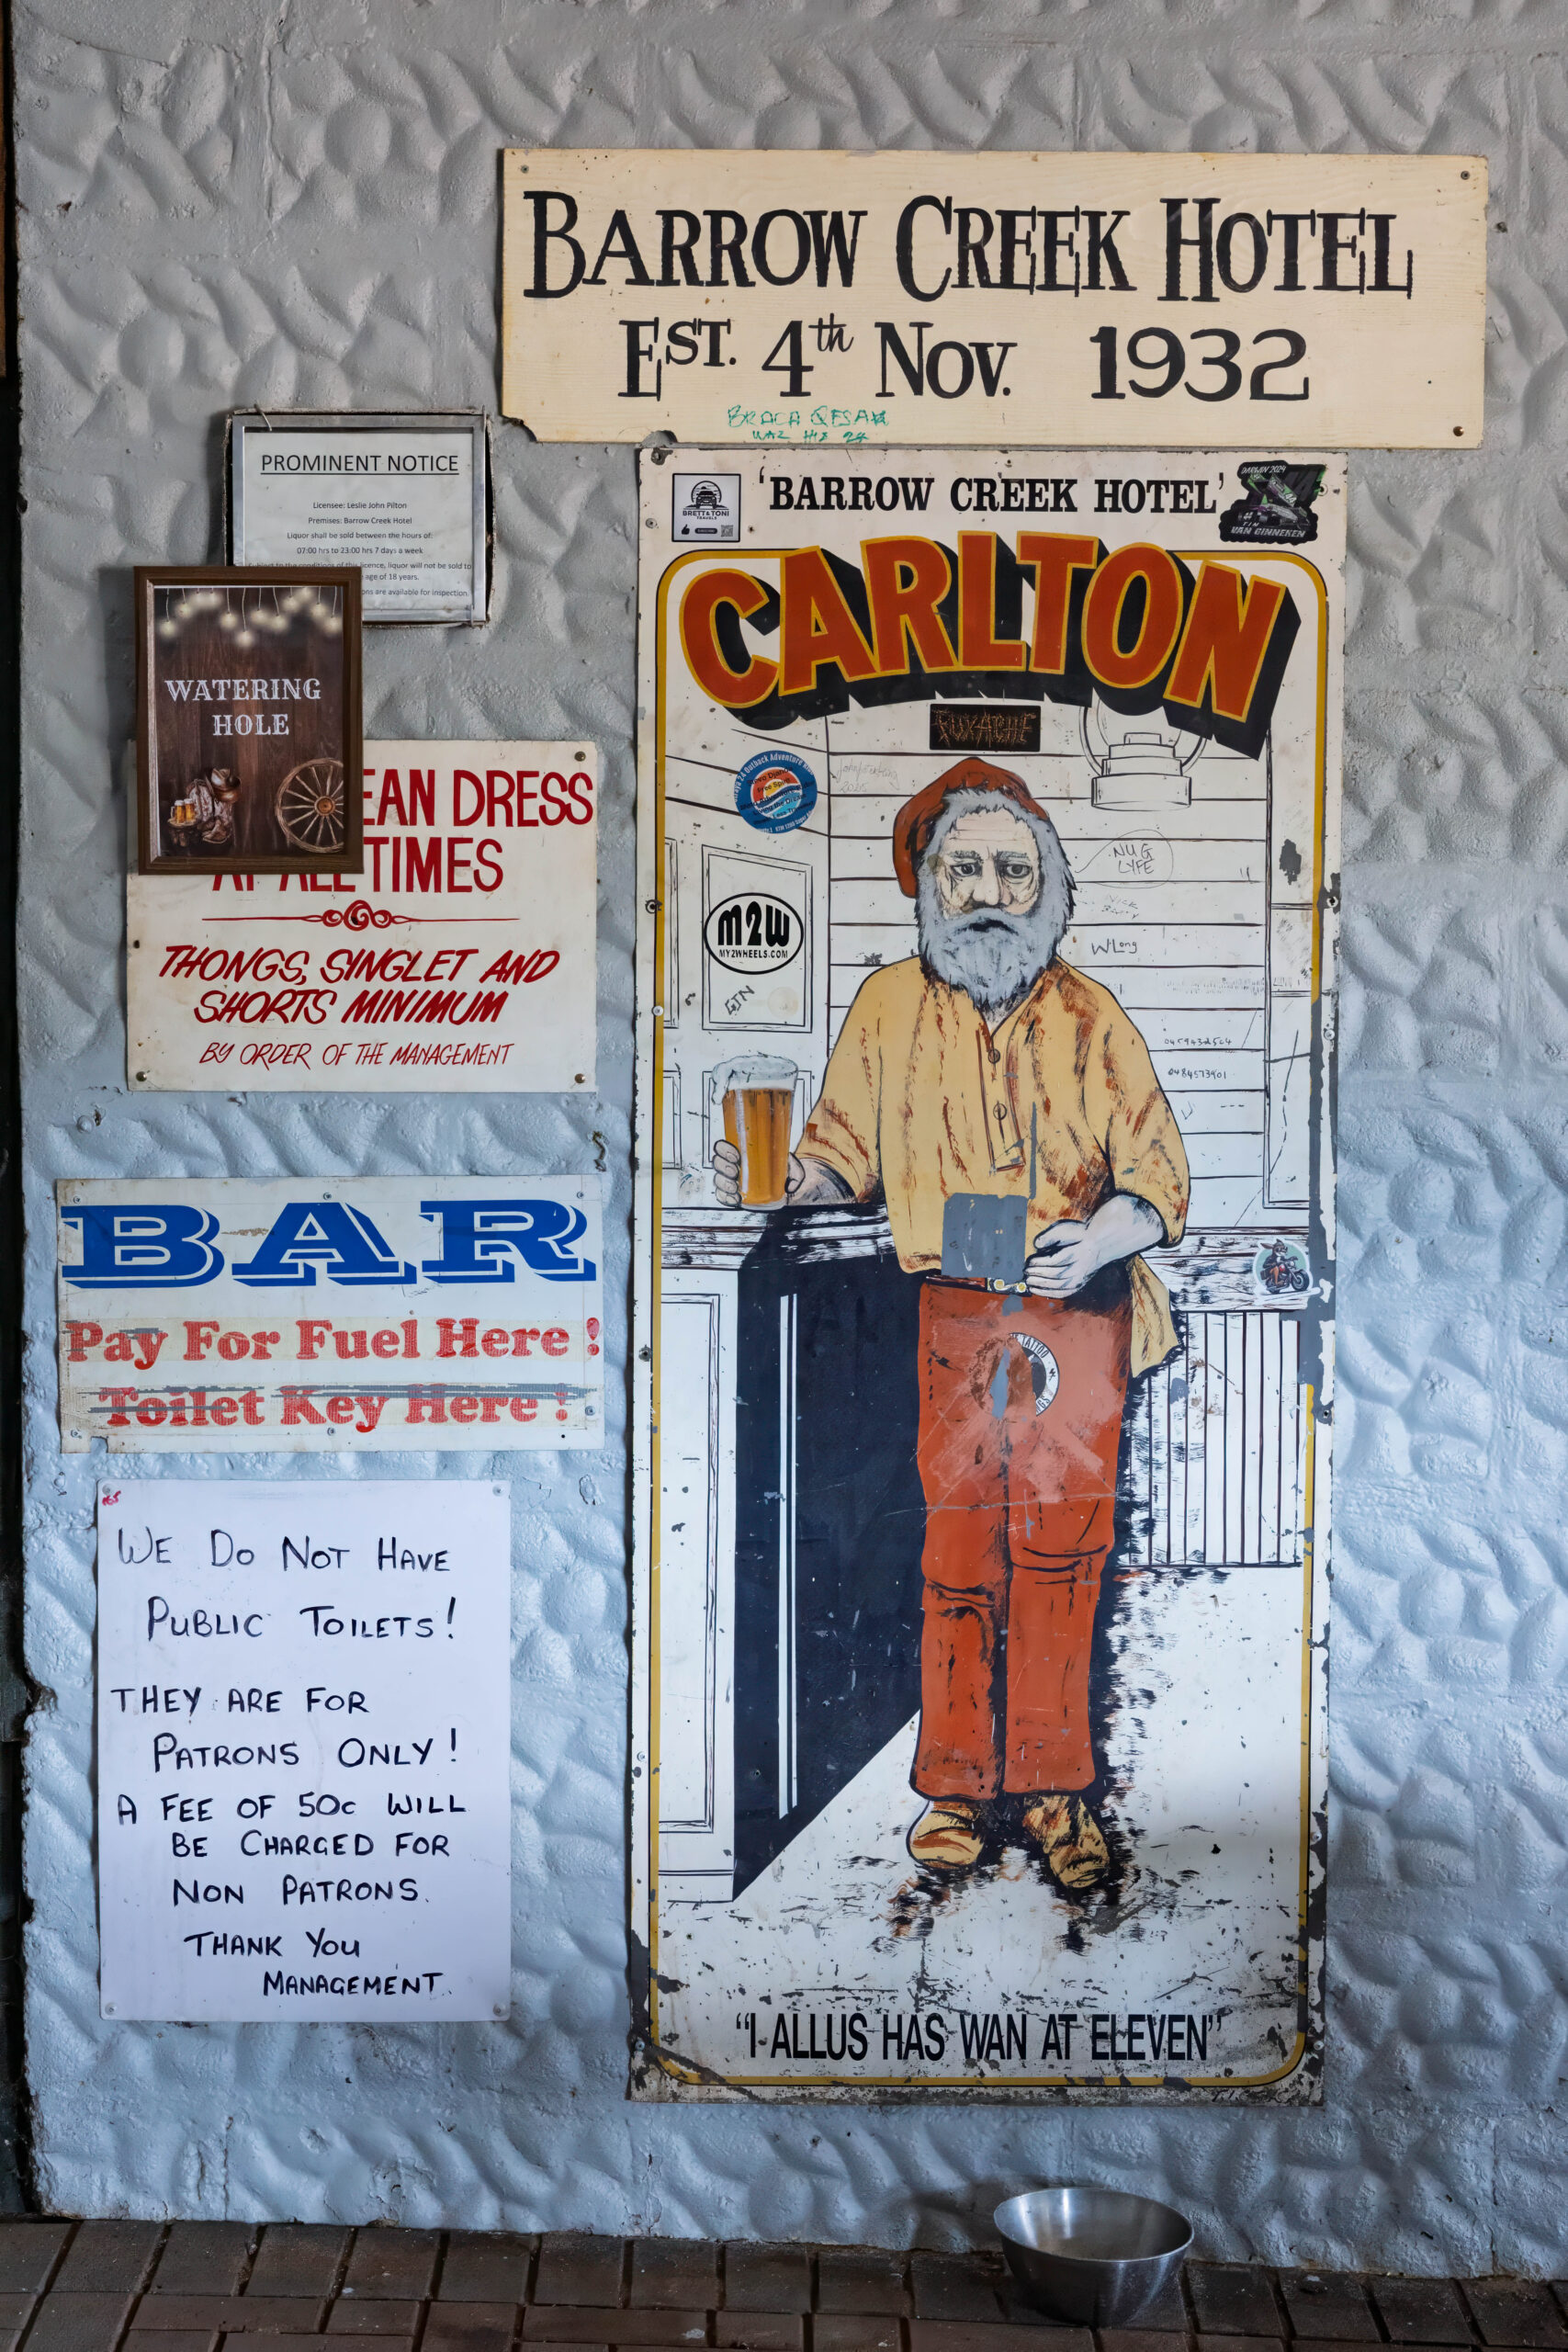 BARROW CREEK HOTEL
EST. 4th NOV. 1932
PROMINENT NOTICE
Licensee: Leslie John Pilton
Premises: Barrow Creek Hotel
Liquor shall be sold between the hours of:
07:00 hrs to 23:00 hrs 7 days a week
licence, liquor will not be sold to
age of 18 years.
are available for inspection.
WATERING
HOLE
DRESS
AT ALL TIMES
THONGS, SINGLET AND
SHORTS MINIMUM
BY ORDER OF THE MANAGEMENT
BAR
Pay For Fuel Here !
Toilet Key Here !
WE DO NOT HAVE
PUBLIC TOILETS!
THEY ARE FOR
PATRONS ONLY!
A FEE OF 50c WILL
BE CHARGED FOR
NON PATRONS.
THANK YOU
MANAGEMENT.
BRETT & TONI
TRAVELS
'BARROW CREEK HOTEL'
DARWIN 2024
VAN GINNEKEN
CARLTON
NUG
LYFE
M2W
MY2WHEELS.COM
GTN
WLong
0484573901
TATTOO
"I ALLUS HAS WAN AT ELEVEN"